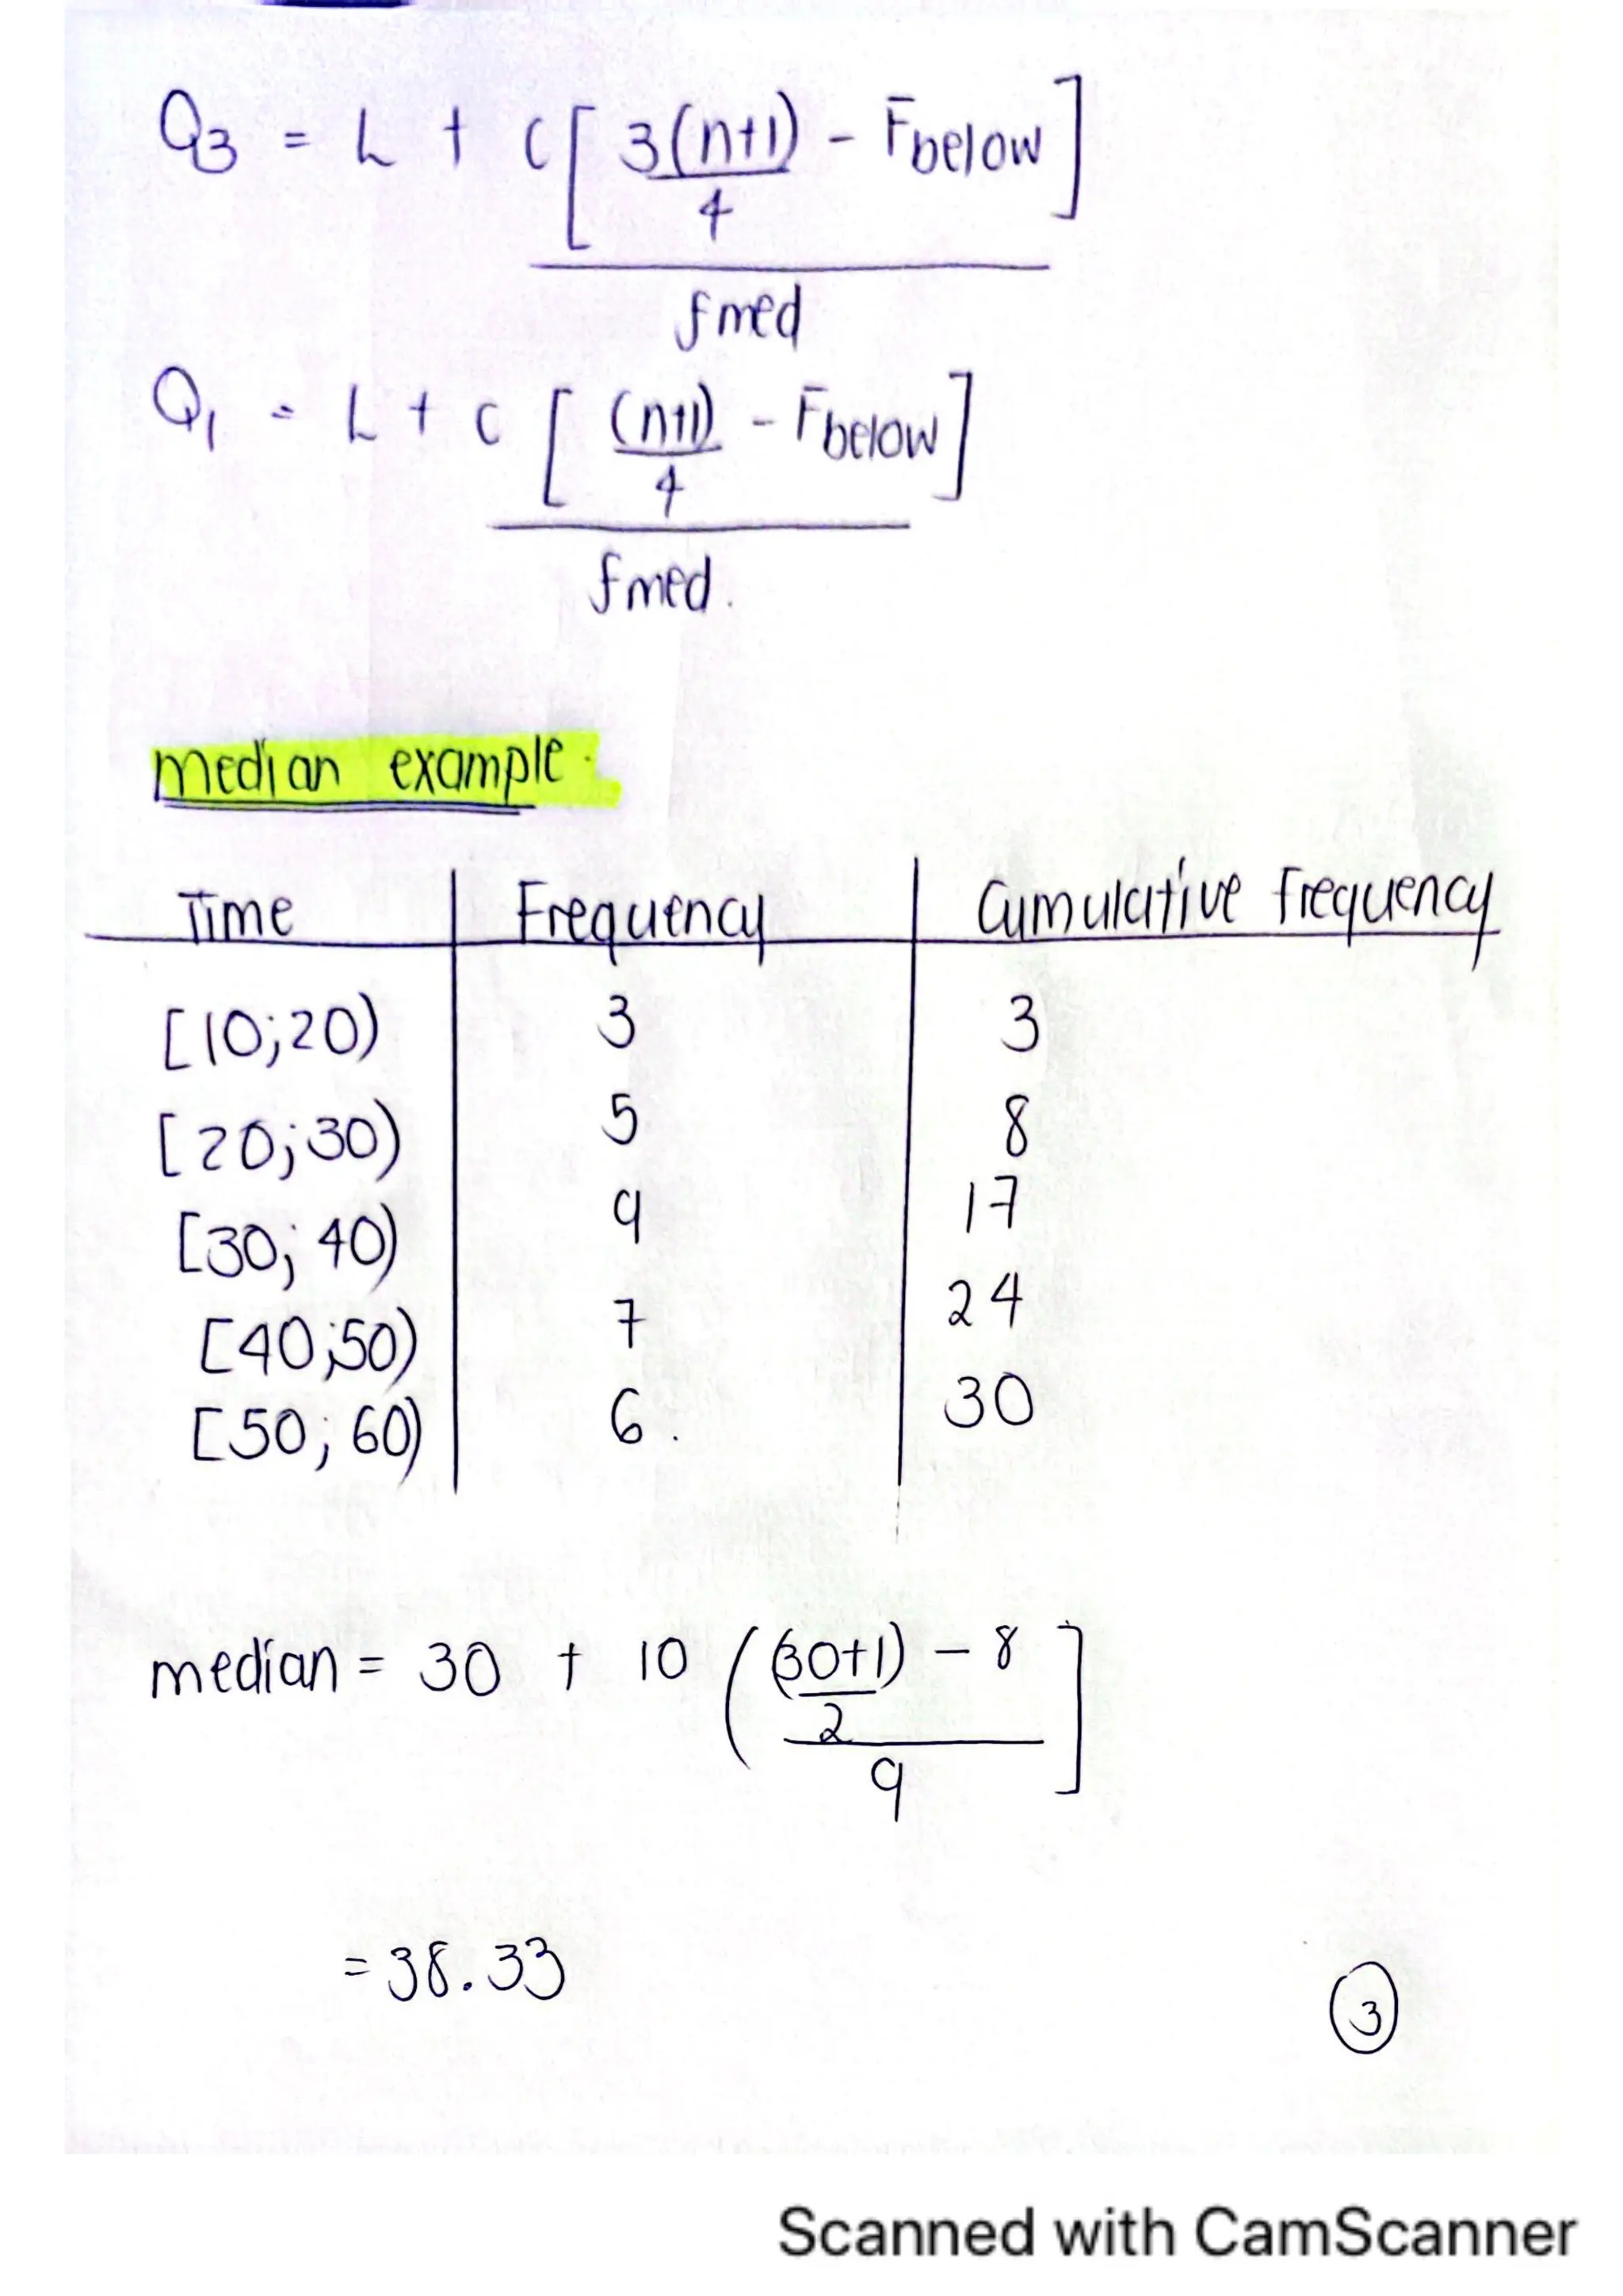 Q3 = L + C[ 3(n+1)/4 - Fbelow ]
fmed
Q1 = L + C [ (n+1)/4 - Fbelow ]
fmed.
median example.
Time | Frequency | Cumulative frequency
[10;20) | 3 | 3
[20;30) | 5 | 8
[30; 40) | 9 | 17
[40;50) | 7 | 24
[50; 60) | 6. | 30
median = 30 + 10 ( (30+1)/2 - 8 ]
9
= 38.33
3
Scanned with CamScanner